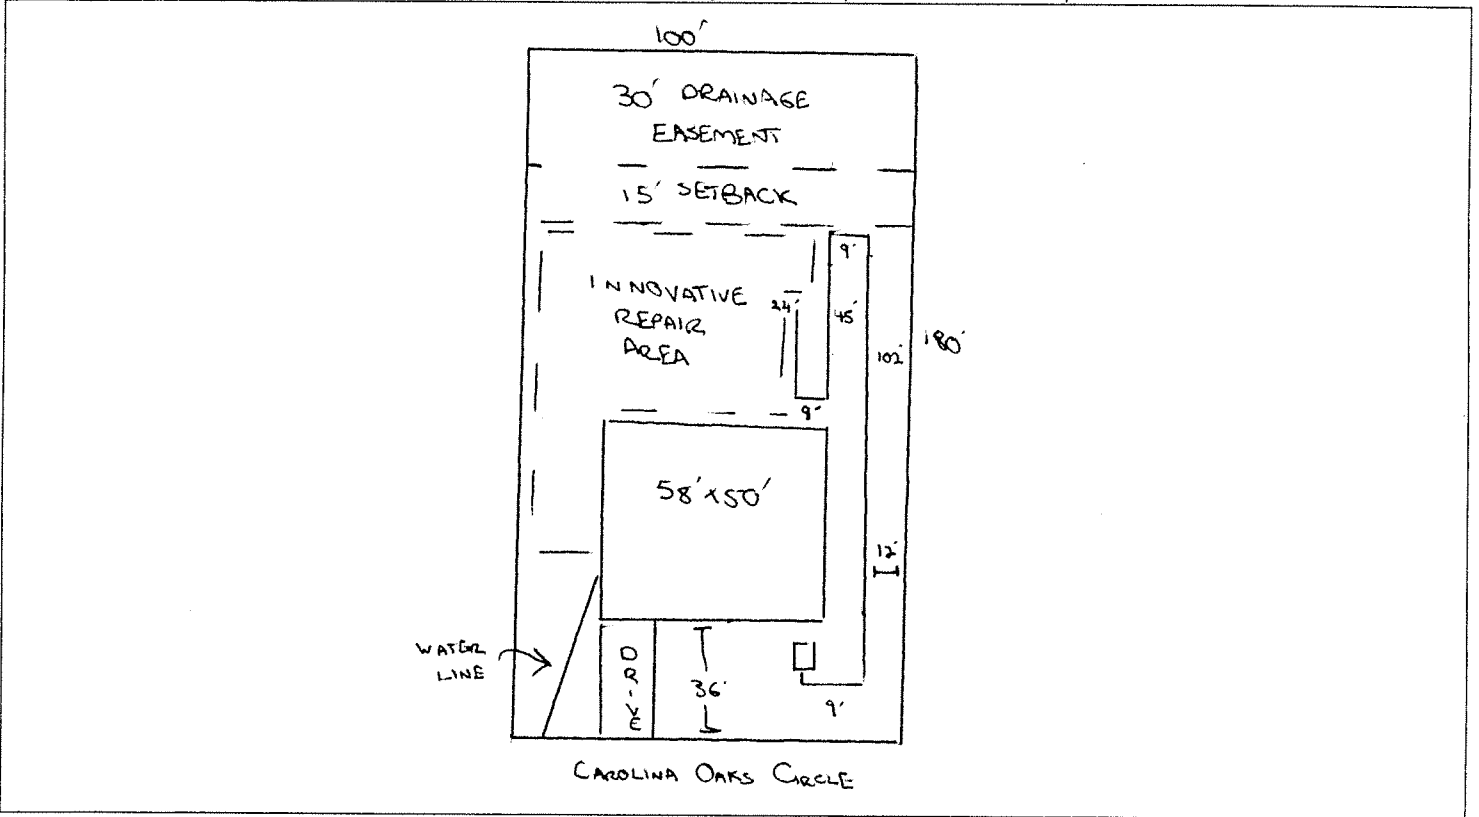 100'
30' DRAINAGE
EASEMENT
15' SETBACK
9'
INNOVATIVE
REPAIR
AREA
24'
45'
102'
180'
9'
58' x 50'
12'
WATER
LINE
DRIVE
36'
9'
CAROLINA OAKS CIRCLE